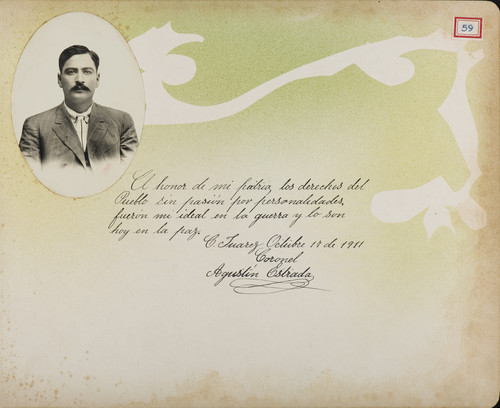 59
El honor de mi patria, los derechos del
Pueblo sin pasión por personalidades,
fuerón mi ideal en la guerra y lo son
hoy en la paz.
C. Juarez, Octubre 14 de 1911
Coronel
Agustín Estrada